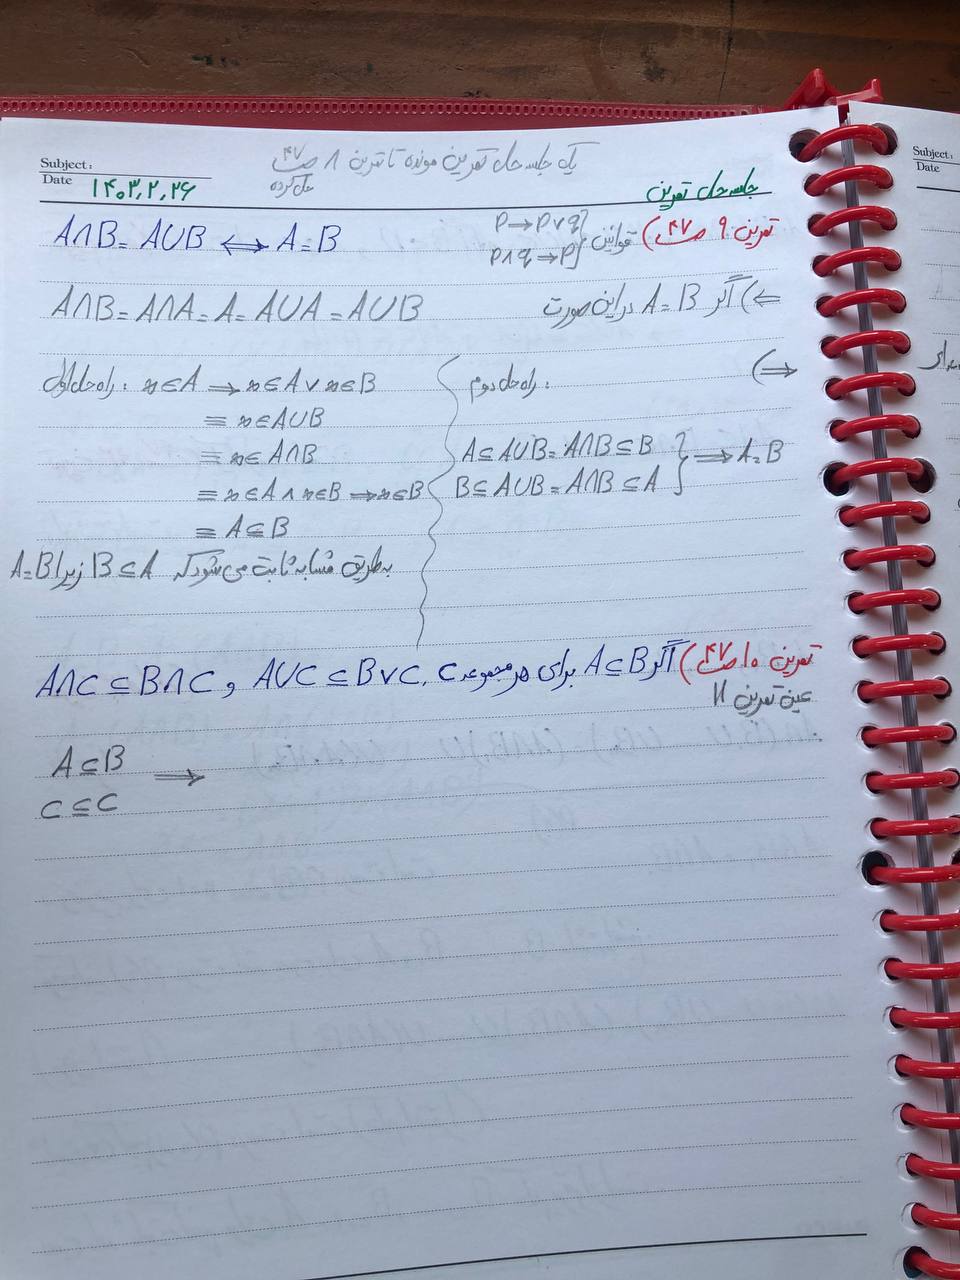 یک جلسه حل تمرین مونده تا تمرین ۸ ص ۴۷
حل کرده
Subject:
Date ۱۴۰۳,۲,۲۶
جلسه حل تمرین
تمرین ۹ ص ۴۷) قوانین } P→P∨q
P∧q→P
A∩B = A∪B ⟺ A=B
⇐) اگر A=B در این صورت
A∩B = A∩A = A = A∪A = A∪B
⇒)
راه حل اول: x∈A → x∈A ∨ x∈B
≡ x∈A∪B
≡ x∈A∩B
≡ x∈A ∧ x∈B → x∈B
≡ A⊆B
به طریق مشابه ثابت می شود که B⊆A زیرا A=B
راه حل دوم:
A⊆A∪B=A∩B⊆B } ⇒ A=B
B⊆A∪B=A∩B⊆A
تمرین ۱۰ ص ۴۷) اگر A⊆B برای هر مجموعه C، A∪C⊆B∨C و A∩C⊆B∩C
عین تمرین ۱۱
A⊆B ⇒
C⊆C
Subject:
Date